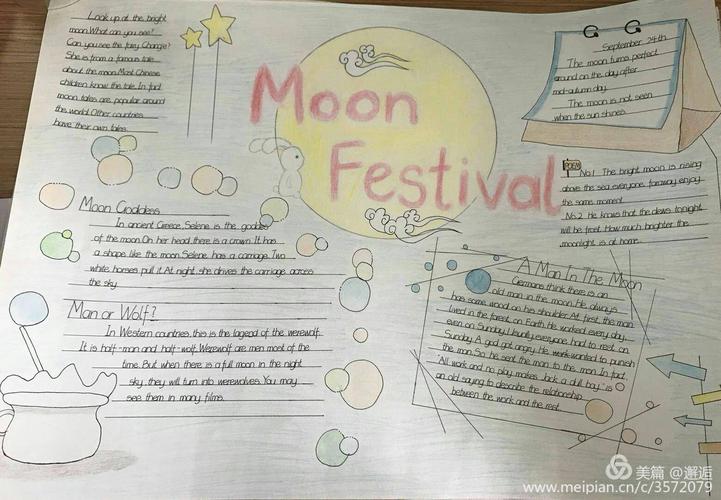 Look up at the bright
moon. What can you see?
Can you see the fairy Change?
She is from a famous tale
about the moon. Most Chinese
children know the tale. In fact
moon tales are popular around
the world. Other countries
have their own tales.
Moon
Festival
September 24th
The moon turns perfect
around on the day after
mid-autumn day.
The moon is not seen
when the sun shines.
POEM
No.1 The bright moon is rising
above the sea, everyone faraway enjoy
the same moment.
No.2 He knows that the dews tonight
will be frost. How much brighter the
moonlight is at home.
Moon Goddess
In ancient Greece, Selene is the goddess
of the moon. On her head, there is a crown. It has
a shape like the moon. Selene has a carriage. Two
white horses pull it. At night, she drives the carriage across
the sky.
Man or Wolf?
In Western countries, this is the legend of the werewolf.
It is half-man and half-wolf. Werewolf are men most of the
time. But when there is a full moon in the night
sky, they will turn into werewolves. You may
see them in many films.
A Man In The Moon
Germans think there is an
old man in the moon. He always
has some wood on his shoulder. At first, the man
lived in the forest on Earth. He worked every day,
even on Sunday. Usually everyone had to rest on
Sunday. A god got angry. He wanted to punish
the man. So he sent the man to the moon. In fact,
"All work and no play makes Jack a dull boy." is
an old saying to describe the relationship
between the work and the rest.
美篇 @邂逅
www.meipian.cn/c/3572079